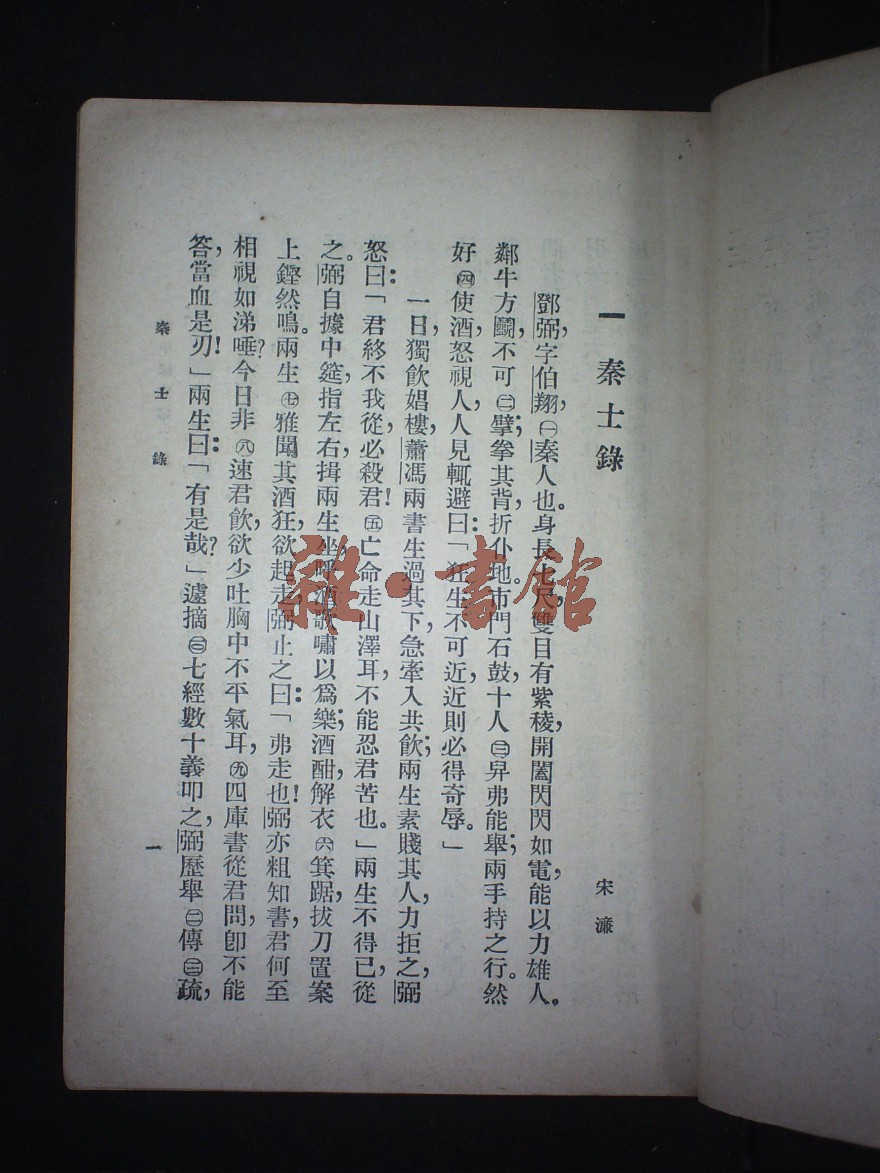 一　秦士錄
宋濂
鄧弼，字伯翔，㊀秦人也。身長七尺，雙目有紫稜，開闔閃閃如電，能以力雄人。
鄰牛方鬭，不可㊁擘，拳其背，折仆地。市門石鼓，十人㊂舁弗能舉；兩手持之行。然
好㊃使酒，怒視人，人見輒避，曰：「狂生不可近，近則必得奇辱。」
一日，獨飲娼樓，蕭馮兩書生過其下，急牽入共飲；兩生素賤其人，力拒之，弼
怒曰：「君終不我從，必殺君！㊄亡命走山澤耳，不能忍君苦也。」兩生不得已，從
之。弼自據中筵，指左右，揖兩生坐，呼酒歌嘯以爲樂；酒酣，解衣㊅箕踞，拔刀置案
上，鏗然鳴。兩生㊆雅聞其酒狂，欲起走，弼止之曰：「弗走也！弼亦粗知書，君何至
相視如涕唾？今日非㊇速君飲，欲少吐胸中不平氣耳，㊈四庫書從君問，卽不能
答，當血是刃！」兩生曰：「有是哉？」遽摘㊀七經數十義叩之，弼歷舉㊁傳㊂疏，
秦士錄
一
雜·書館